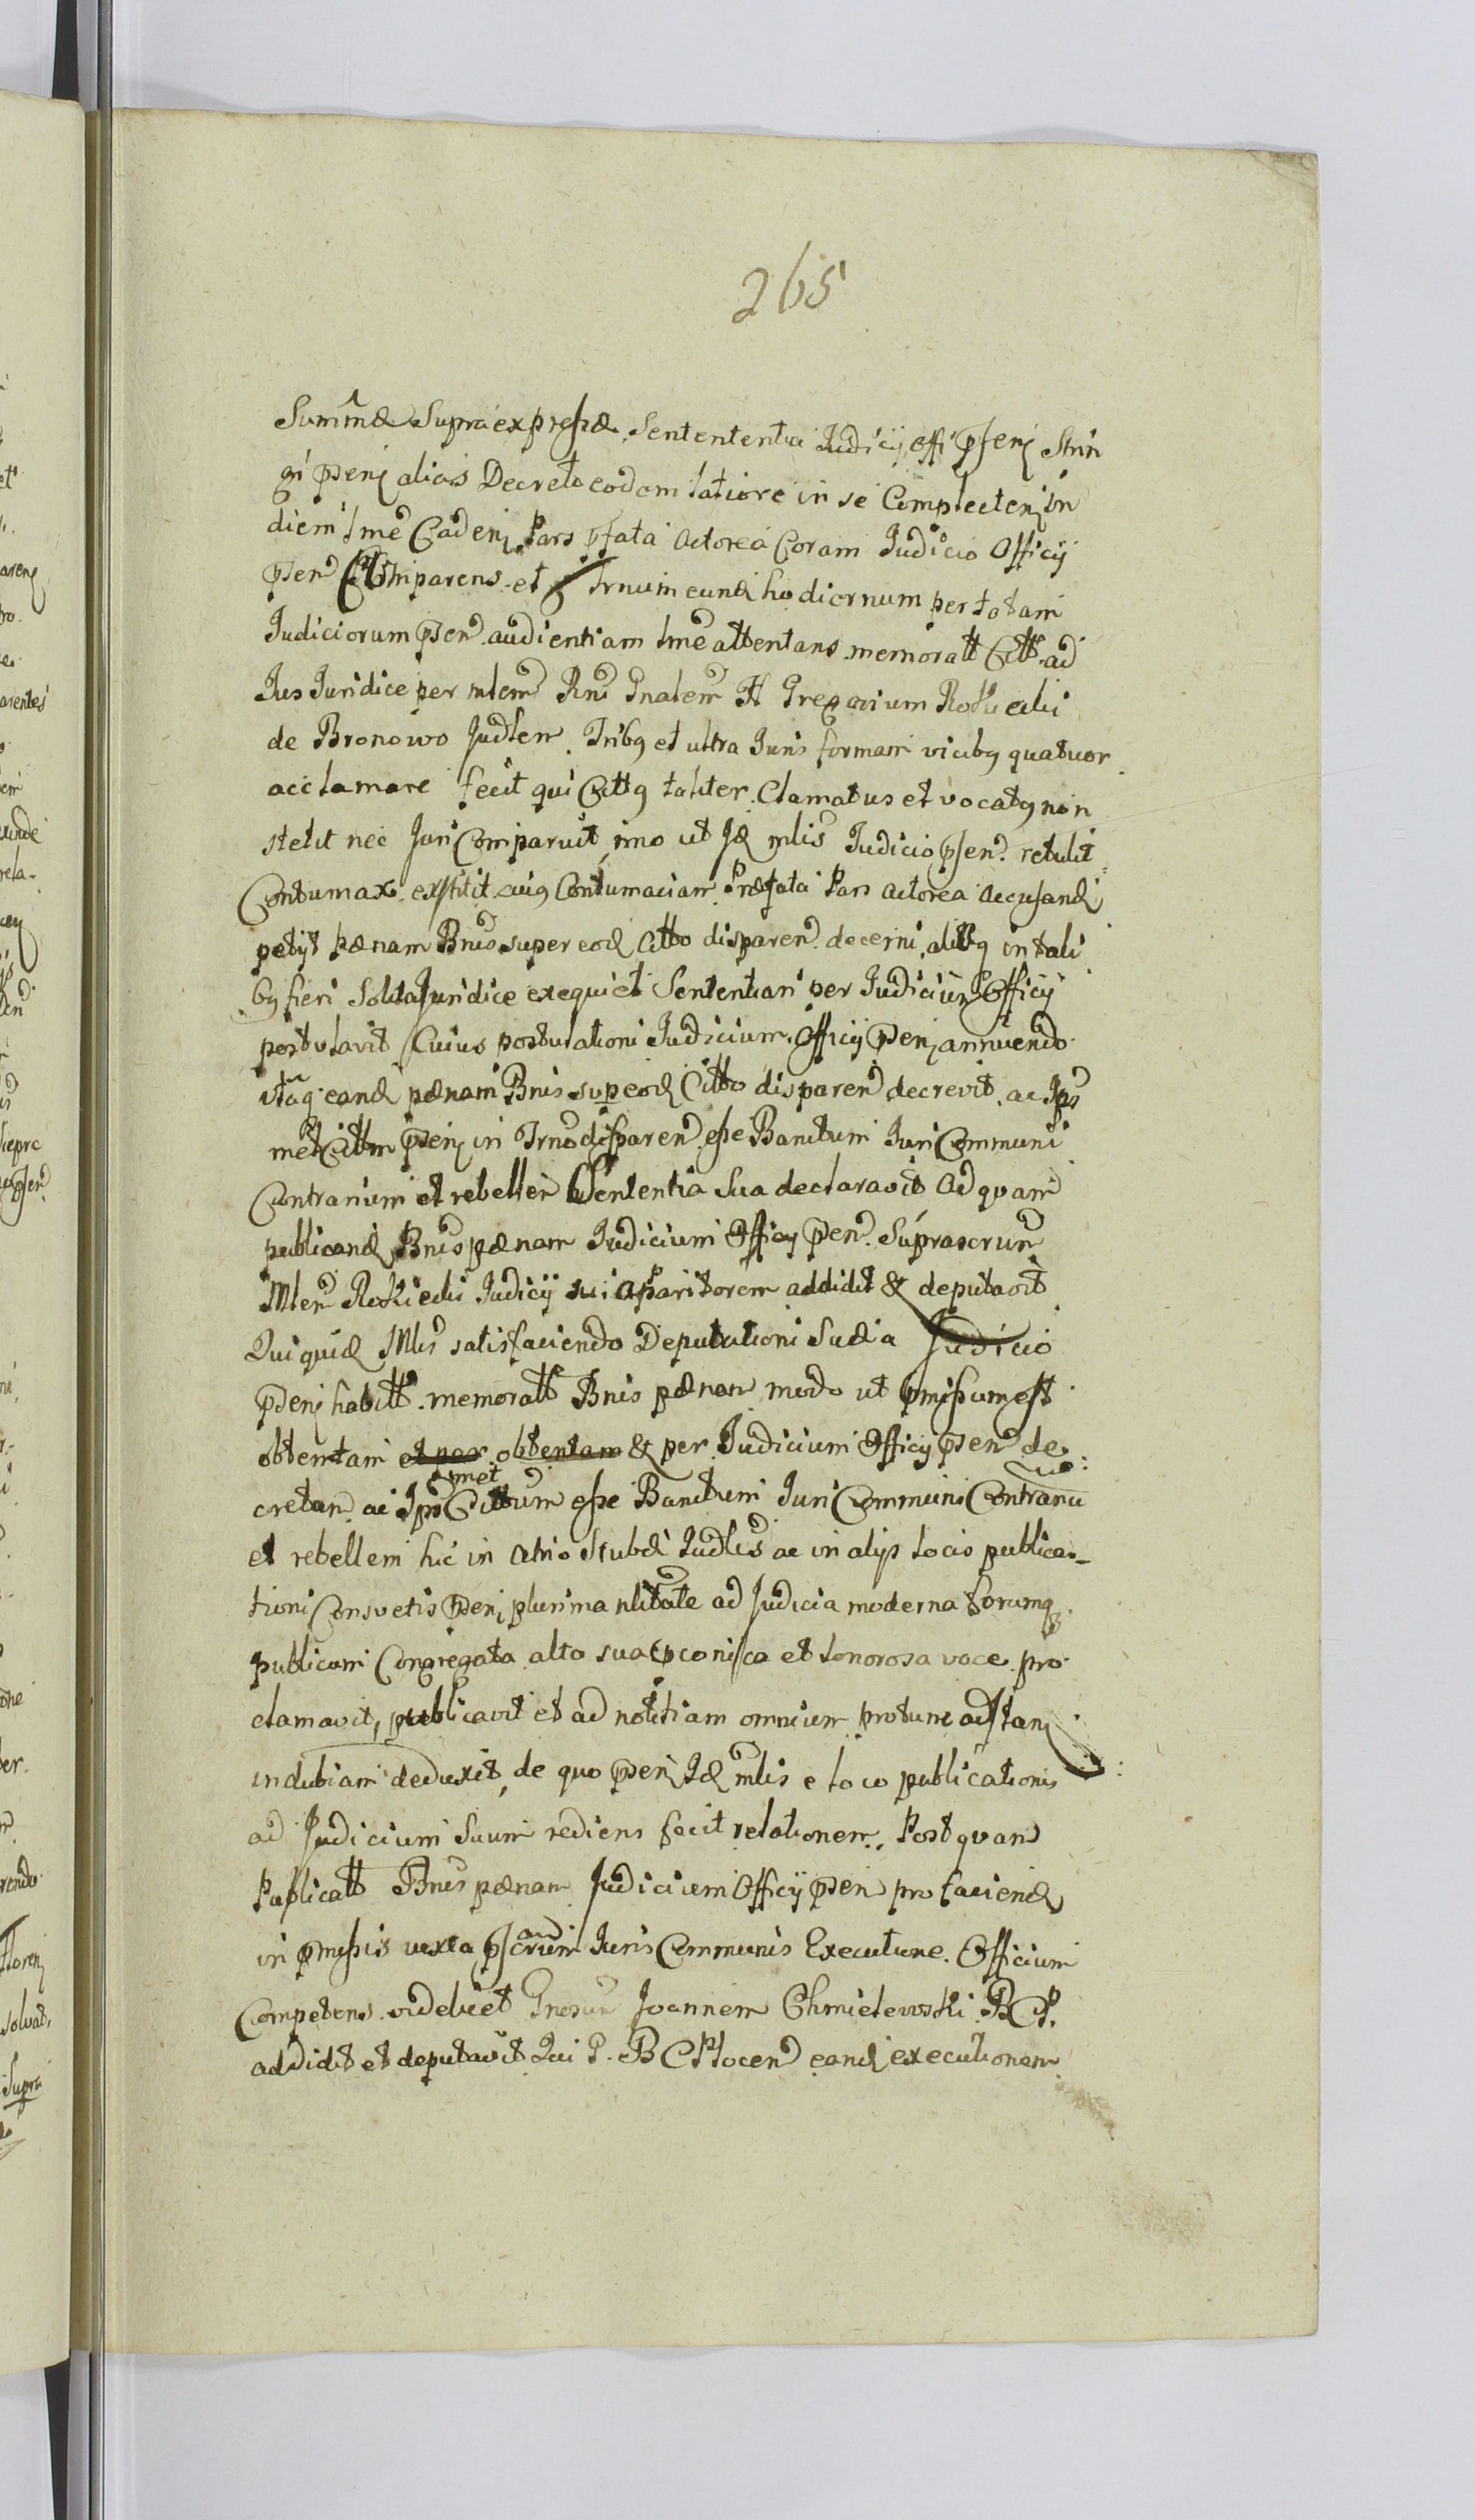 265
Summæ Supra expressæ Sentententia Judicij offi psenj Strin
gi psenj alias Decreto eodem latiore in se Complectenj in
diem lmẽ Cadenj Pars pfata Actorea Coram Judicio Officij
psen Comparens et Trnum eund hodiernum per totam
Judiciorum psen audientiam lmẽ attentans memoratt Citt ad
Jus Juridice per mlem Rni Gnalem H Gregorium Rokicki
de Bronowo Judlem Tribq et ultra Juris formam vicibq quatuor
acclamare fecit qui Cittq taliter Clamatus et vocatq non
stetit nec Juri Comparuit, imo ut Id mlis Judicio psen retulit
Contumax exstitit cuiq Contumaciam Præfata Pars actorea accusand
petijt pænam Bnis super eod Citto disparen decerni, alibq in tali
bq fieri Solita Juridice exequi et Sententiari per Judicium Officij
postulavit Cuius postulationi Judicium Officij psenj annuendo
itaq eand pænam Bnis sup eod Citto disparen decrevit ac Ips
met Cittm psenj in Trno disparen esse Banitum Juri Communi
Contrarium et rebellem Sententia Sua declaravit Ad quam
publicand Bnis pænam Judicium Officij psen Suprascrum
Mlem Rokicki Judicij sui Aparitorem addidit & deputavit
Qui quid Mlis satisfaciendo Deputationi Suæ a Judicio
psenj habitt memoratt Bnis pænam modo ut pmissum est
obtentam et per obtentam & per Judicium Officij psen de
cretam ac Ips met Cittum esse Banitum Juri Communi Contrariũ
et rebellem hic in Atrio Stubæ Judlis ac in alijs locis publica-
tioni Consvetis psenj plurima nlitate ad Judicia moderna forumq
publicum Congregata alto sua pconisca et sonorosa voce pro
clamavit, publicavit et ad notitiam omnium protunc adstanj
indubiam deduxit, de quo psenj Id mlis e loco publicationis
ad Judicium Suum rediens fecit relationem. Post quam
Publicatt Bnis pænam Judicium Officij psen pro faciend
in pmissis iuxta pscrum Juris Communis Executione Officium
Competens videlicet Gnosum Joannem Chmielewski B C P.
addidit et deputavit Qui G. B C P locen eand executionem